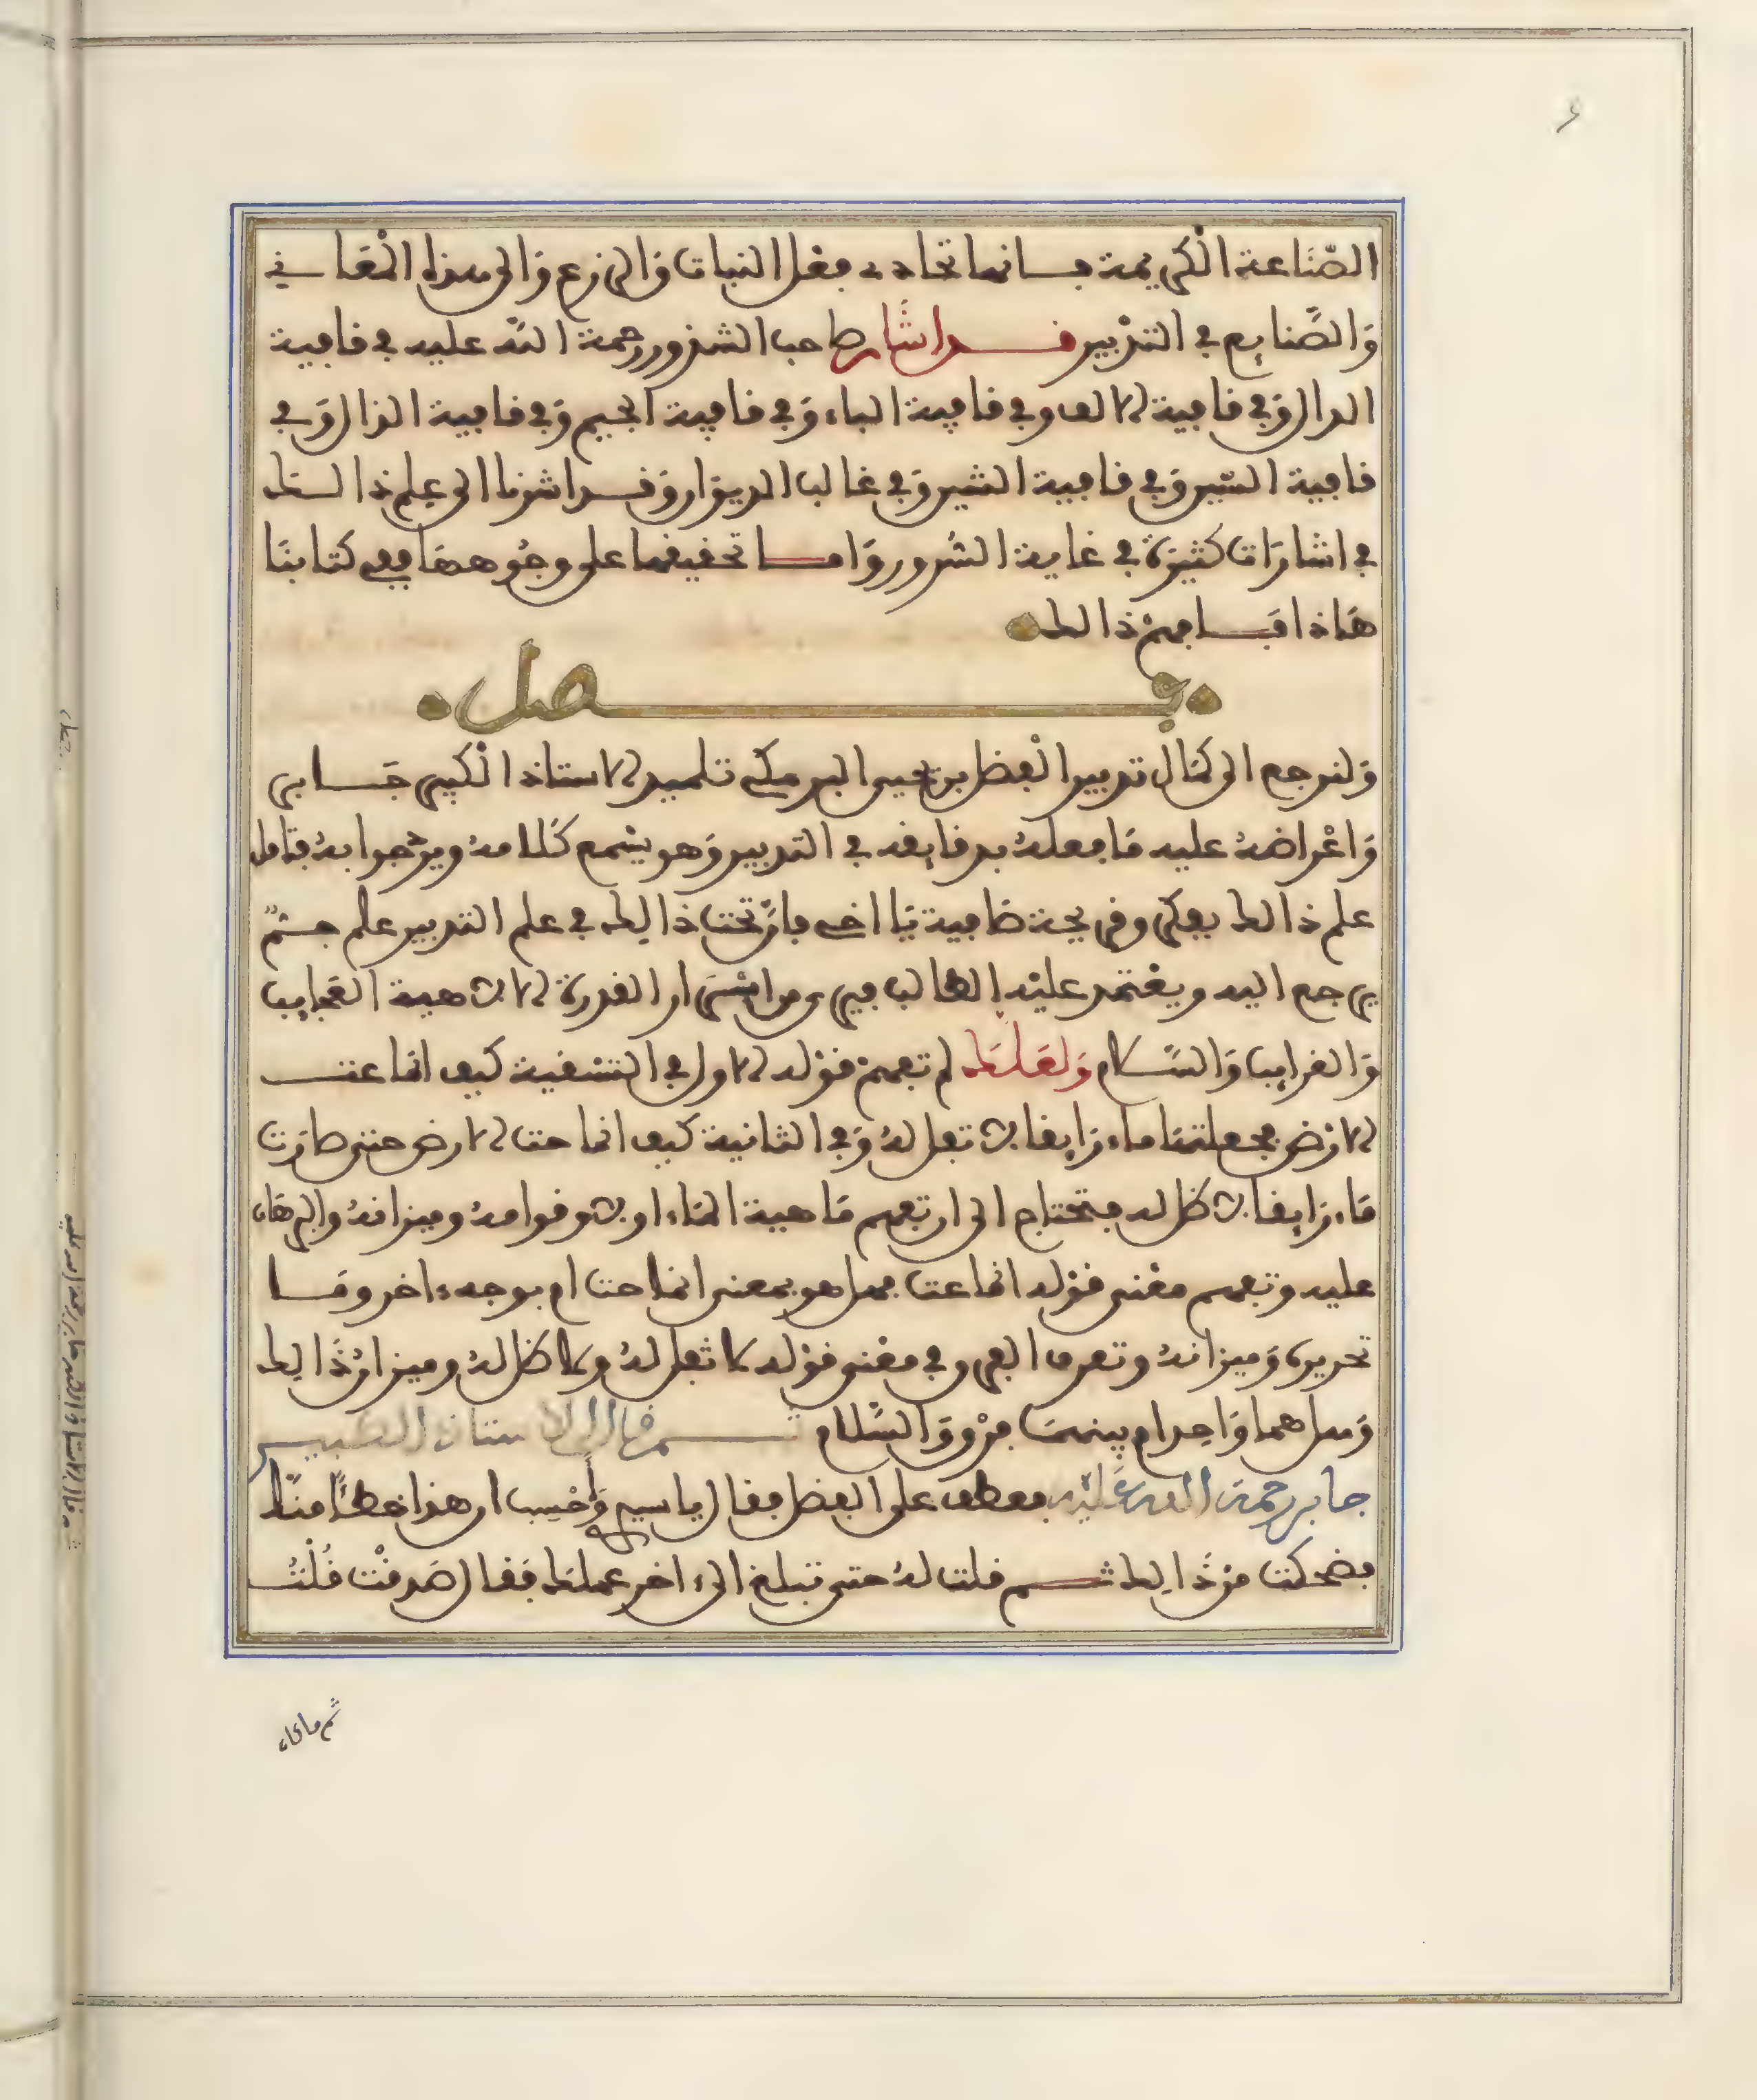 الصّنَاعة الْكريمة بانها تحاذى بفعل النبات وَالزرع وَالى هذه الْمَعَاني
وَالصَّنايع في التدْبير فــد اشَار صاحب الشذور رحمة اللّه عليه في قافية
الدال وَفي قافية الالف وفي قافية الباء وَفي قافية الجيم وَفي قافية الذال وَفي
قافية السّين وَفي قافية الشين وَفي غالب الديوَان وَقــد اشرنا الى عِلم ذالــك
في اشارَات كثيرَة في غاية السُرور وَامــا تحقيقها على وجُوههَا ففى كتابنَا
هَاذا فَــافهمْ ذالك
فــصل
وَلنرجع الى كمَال تدبير الْفضل بن يحيى البرمكى تلميذ الاستاذ الْكبير جَــابر
وَاعْراضهُ عليه مَا فعلهُ بدقايقه في التدبير وَهو يسْمع كَلامهُ ويرُدّ جوابهُ فتامل
علم ذالك بفكر وقريحة صَافية يَا اخى فانَّ تحت ذالِك في علم التدبير علم جــمٌّ
يرجع اليه ويعْتمد عليْه الطالب فيرى من اسْرَار القدرة الالاهية العَجايب
وَالغرايب وَالسّــلام وَلعَلــك لم تفهمْ قوْله الاول في التسْقية كيف انماعت
الارْض فجعلتهَا ماء رَايقا لا تفل لهُ وَفي الثانية كيف انماحت الارض حتى صارَت
مَاء رَايقا لا ظل له فتحتاج الى ان تفهم مَاهية المَاء اولا وقوامهُ وميزانهُ والبرهَان
عليه وتفهم معْنى قوْله انماعت فهل هو بمعنى انماحت ام بوجه ءاخر ومَــا
تحريره وَميزانهُ وتعرف الفرق في معْنى قوْله لا ثفل لهُ ولا ظل لهُ وميزان ذَالِك
وَهل هما وَاحد ام بينهمَا فرْق وَالسَّلام ثــم قال الاستاذ الكبيــر
جابر رحمة الله عَليْه فعطف على الفضل فقال يا سيدى وَاحْسِب ان هذا خطأً منــك
فضحكت من ذَالِك ثــم قلت لهُ حتى تبلغ الى ءاخر عملك فَقال صَدقْت قُلْتُ
ثم ماذا